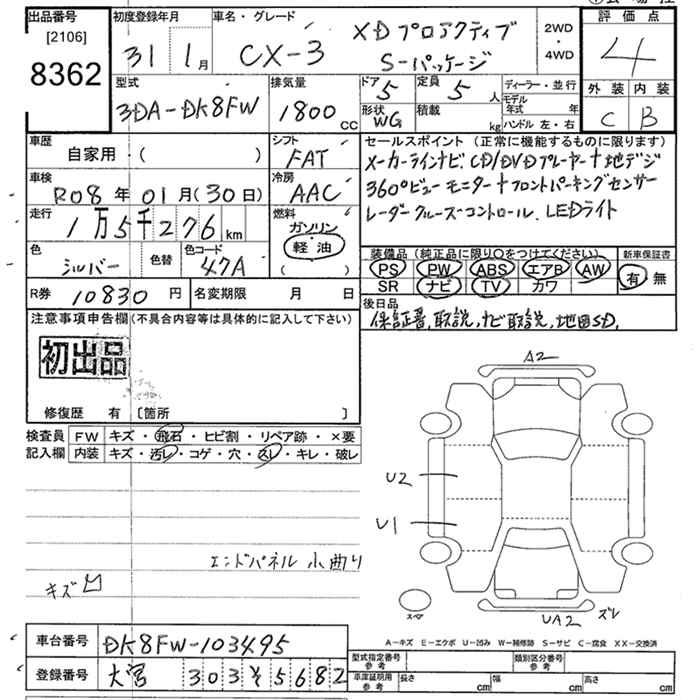 出品番号
[2106]
8362
初度登録年月
31 1月
車名・グレード
CX-3
XDプロアクティブ
S-パッケージ
2WD
・
4WD
評価点
4
外装 内装
C B
型式
3DA-DK8FW
排気量
1800 CC
ドア
5
定員
5 人
形状
WG
積載
kg
ディーラー・並行
モデル
年式 年
ハンドル 左・右
車歴
自家用・( )
シフト
FAT
車検
R08年 01月(30日)
冷房
AAC
走行
1万5千276km
燃料
ガソリン
軽油
( )
色
シルバー
色替
色コード
47A
セールスポイント(正常に機能するものに限ります)
メーカーラインナビ CD/DVDプレーヤー+地デジ
360°ビューモニター+フロントパーキングセンサー
レーダークルーズコントロール. LEDライト
装備品(純正品に限り○をつけてください)
PS PW ABS エアB AW
SR ナビ TV カワ
新車保証書
有 無
R券 10830円
名変期限 月 日
後日品
保証書, 取説, ナビ取説, 地図SD,
注意事項申告欄(不具合内容等は具体的に記入して下さい)
初出品
修復歴 有 [箇所 ]
検査員
記入欄
FW キズ・飛石・ヒビ割・リペア跡・×要
内装 キズ・汚レ・コゲ・穴・スレ・キレ・破レ
A2
U2
U1
エンドパネル 小曲り
キズ
スペア
UA2 ズレ
A-キズ E-エクボ U-凹み W-補修跡 S-サビ C-腐食 XX-交換済
車台番号 DK8FW-103495
登録番号 大宮 303 そ 5682
型式指定番号
参考
類別区分番号
参考
車庫証明用
参考
長さ cm 幅 cm 高さ cm